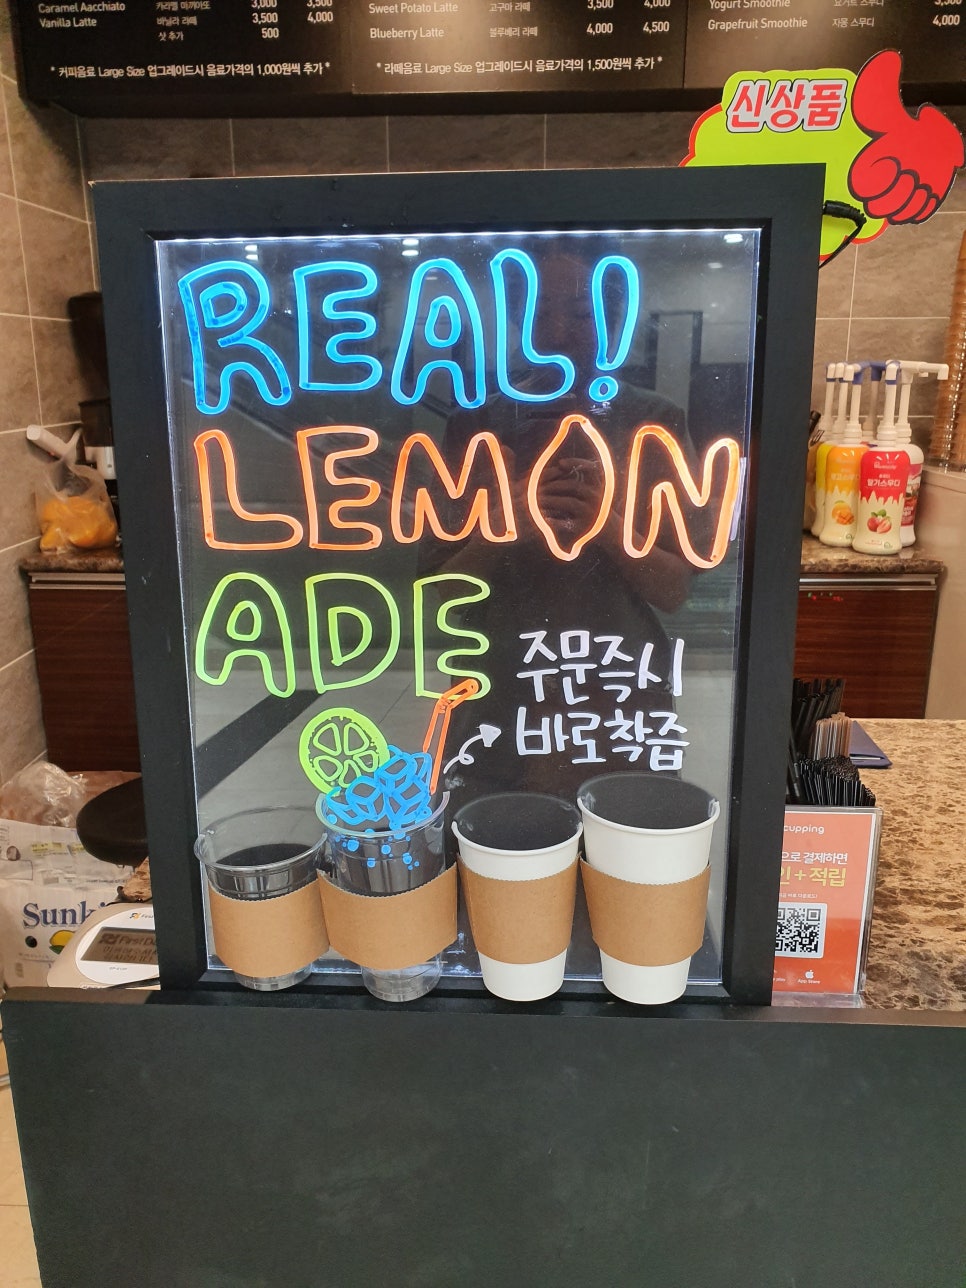 Caramel Aacchiato 카라멜 마끼아또 3,000 3,500
Vanilla Latte 바닐라 라떼 3,500 4,000
샷 추가 500
* 커피음료 Large Size 업그레이드시 음료가격의 1,000원씩 추가 *
Sweet Potato Latte 고구마 라떼
Blueberry Latte 블루베리 라떼 4,000 4,500
* 라떼음료 Large Size 업그레이드시 음료가격의 1,500원씩 추가 *
Yogurt Smoothie 요거트 스무디
Grapefruit Smoothie 자몽 스무디 4,000
신상품
REAL!
LEMON
ADE
주문즉시
바로착즙
딸기스무디
cupping
으로 결제하면
인+적립
App Store
Sunki
First Da